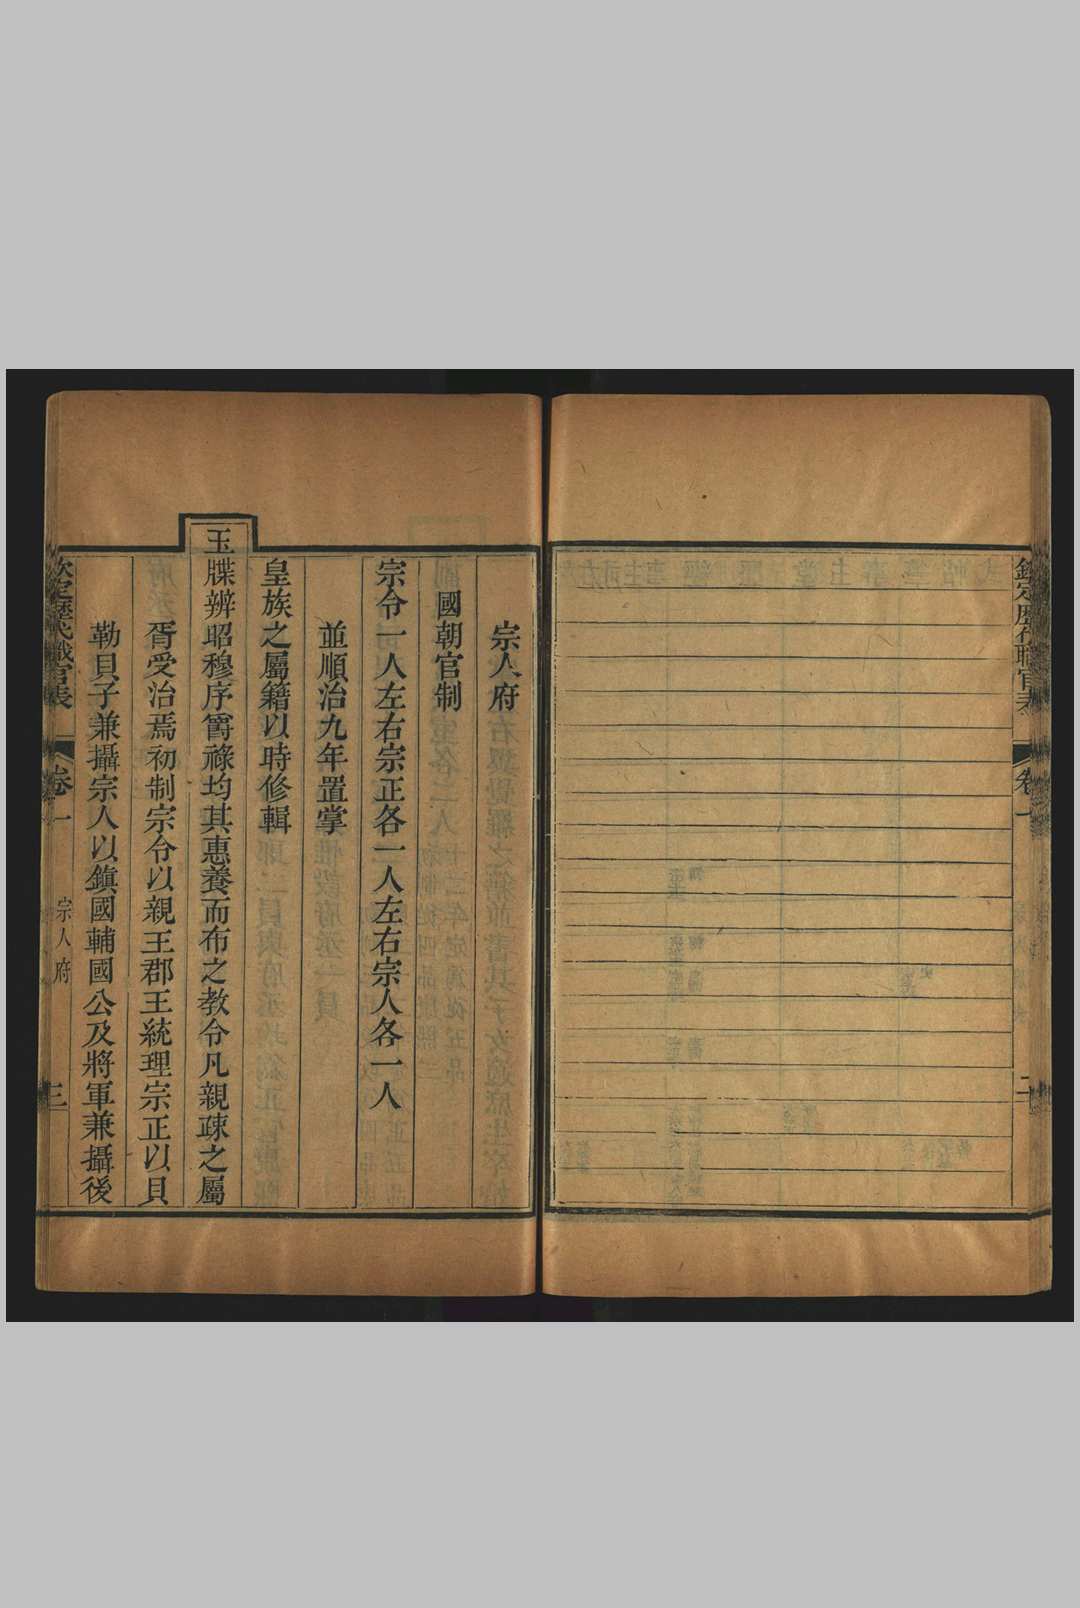 欽定歷代職官表
卷一
二
宗人府
國朝官制
宗令一人左右宗正各一人左右宗人各一人
並順治九年置掌
皇族之屬籍以時修輯
玉牒辨昭穆序爵祿均其惠養而布之教令凡親疎之屬
胥受治焉初制宗令以親王郡王統理宗正以貝
勒貝子兼攝宗人以鎮國輔國公及將軍兼攝後
欽定歷代職官表
卷一
宗人府
三